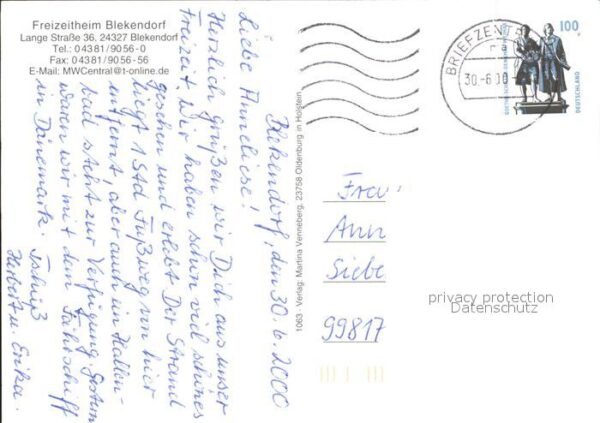 Freizeitheim Blekendorf
Lange Straße 36, 24327 Blekendorf
Tel.: 04381/9056-0
Fax: 04381/9056-56
E-Mail: MWCentral@t-online.de
Blekendorf, den 30.6.2000
Liebe Anneliese!
Herzlich grüßen wir Dich aus unser
Freizeit. Wir haben schon viel schönes
gesehen und erlebt. Der Strand
liegt 1 Std Fußweg von hier
entfernt, aber auch ein Hallen-
bad steht zur Verfügung. Gestern
waren wir mit dem Fährschiff
in Dänemark. Tschüß
Herbert u. Erika.
1063 - Verlag: Martina Wenneberg, 23758 Oldenburg in Holstein
BRIEFZENT
30.-6.00
100
DEUTSCHLAND
Frau
Ann
Siebe
99817
privacy protection
Datenschutz